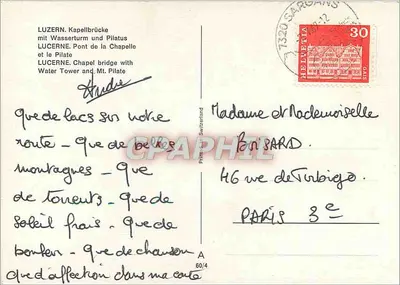 LUZERN. Kapellbrücke
mit Wasserturm und Pilatus
LUCERNE. Pont de la Chapelle
et le Pilate
LUCERNE. Chapel bridge with
Water Tower and Mt. Pilate
André
que de lacs sur notre
route - que de belles
montagnes - que
de torrents - que de
soleil frais - que de
bonheur - que de chanson
que d'affection dans ma carte
7320 SARGANS
HELVETIA
30
Madame et Mademoiselle
BOISARD
46 rue de Turbigo
PARIS 3e
Switzerland
A
60/4
CPAPHIL